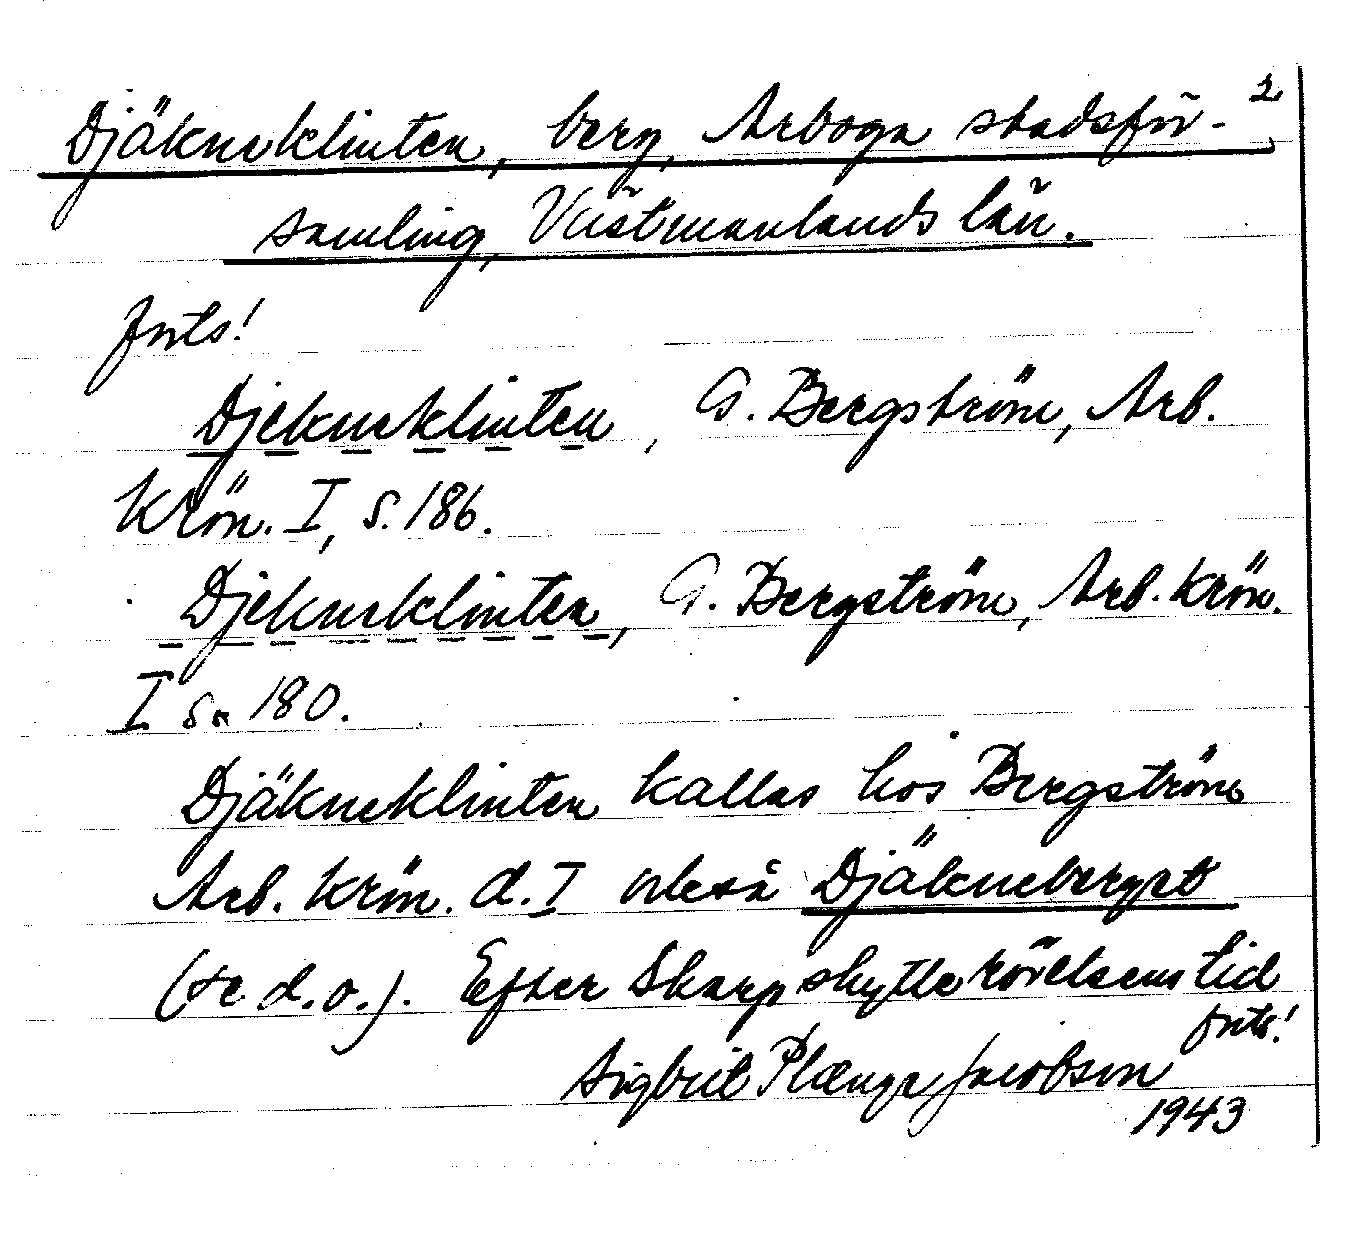 2
Djäkneklinten, berg, Arboga stadsför-
samling, Västmanlands län.
forts!
Djekneklinten, G. Bergström, Arb.
Krön. I, s. 186.
Djekneklinten, G. Bergström, Arb. Krön.
I s. 180.
Djäkneklinten kallas hos Bergström
Arb. Krön. d. I också Djäkneberget
(se d.o.). Efter Skarpskytterörelsens tid
forts!
Sigbrit Plænge Jacobson
1943